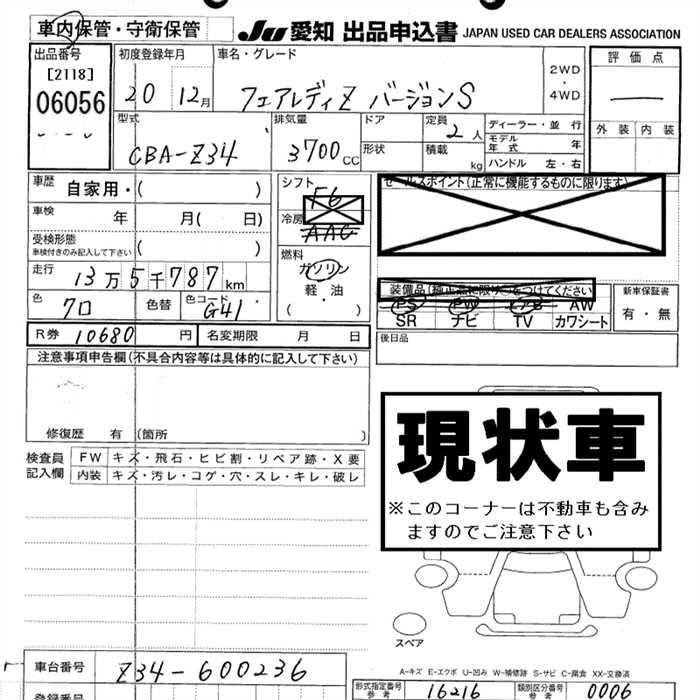 車内保管・守衛保管
JU 愛知 出品申込書 JAPAN USED CAR DEALERS ASSOCIATION
出品番号
[2118]
06056
初度登録年月
20 12月
車名・グレード
フェアレディZ バージョンS
2WD
・
4WD
評価点
外装 内装
型式
CBA-Z34
排気量
3700cc
ドア
形状
定員 2人
積載 kg
ディーラー・並行
モデル年式 年
ハンドル 左・右
車歴 自家用・( )
車検 年 月( 日)
受検形態
車検付きのみ記入して下さい ( )
走行 13万5千787km
色 クロ 色替 色コード G41
シフト F6
冷房 AAC
燃料
ガソリン
軽・油
( )
セールスポイント(正常に機能するものに限ります)
装備品
をつけてください
PS PW AB AW
SR ナビ TV カワシート
新車保証書
有・無
後日品
R券 10680 円 名変期限 月 日
注意事項申告欄(不具合内容等は具体的に記入して下さい)
修復歴 有 (箇所 )
検査員記入欄
FW キズ・飛石・ヒビ割・リペア跡・X要
内装 キズ・汚レ・コゲ・穴・スレ・キレ・破レ
現状車
※このコーナーは不動車も含み
ますのでご注意下さい
スペア
A-キズ E-エクボ U-凹み W-補修跡 S-サビ C-腐食 XX-交換済
車台番号 Z34-600236
型式指定番号 参考 16216
類別区分番号 参考 0006
登録番号